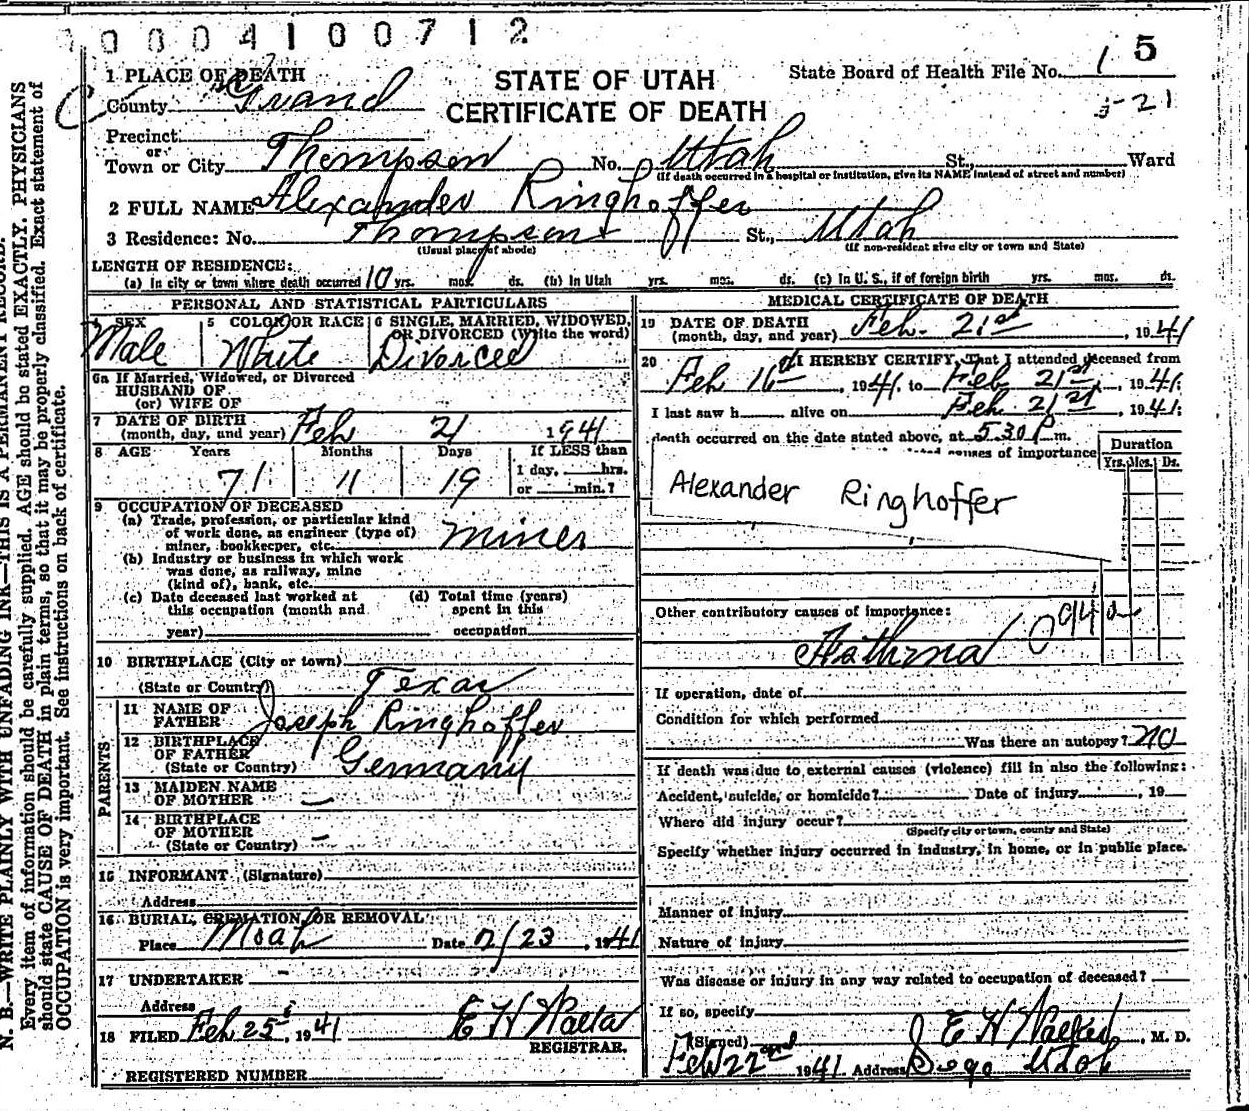 0004100712
1 5
STATE OF UTAH
CERTIFICATE OF DEATH
State Board of Health File No. 1
3-21
1 PLACE OF DEATH
County Grand
Precinct
or
Town or City Thompson No. Utah St., Ward
(If death occurred in a hospital or institution, give its NAME instead of street and number)
2 FULL NAME Alexander Ringhoffer
3 Residence: No. Thompsons St., Utah
(Usual place of abode) (If non-resident give city or town and State)
LENGTH OF RESIDENCE:
(a) In city or town where death occurred 10 yrs. mos. ds. (b) In Utah yrs. mos. ds. (c) In U. S., if of foreign birth yrs. mos. ds.
PERSONAL AND STATISTICAL PARTICULARS
4 SEX Male
5 COLOR OR RACE White
6 SINGLE, MARRIED, WIDOWED, OR DIVORCED (Write the word) Divorced
6a If Married, Widowed, or Divorced
HUSBAND OF
(or) WIFE OF
7 DATE OF BIRTH
(month, day, and year) Feb 21 1941
8 AGE Years Months Days If LESS than
71 11 19 1 day, hrs.
or min.?
9 OCCUPATION OF DECEASED
(a) Trade, profession, or particular kind
of work done, as engineer (type of)
miner, bookkeeper, etc. miner
(b) Industry or business in which work
was done, as railway, mine
(kind of), bank, etc.
(c) Date deceased last worked at
this occupation (month and
year)
(d) Total time (years)
spent in this
occupation
10 BIRTHPLACE (City or town)
(State or Country) Texas
PARENTS
11 NAME OF
FATHER Joseph Ringhoffer
12 BIRTHPLACE
OF FATHER
(State or Country) Germany
13 MAIDEN NAME
OF MOTHER —
14 BIRTHPLACE
OF MOTHER
(State or Country) —
15 INFORMANT (Signature)
Address
16 BURIAL, CREMATION, OR REMOVAL
Place Moab Date 2/23, 1941
17 UNDERTAKER -
Address
18 FILED Feb 25, 1941 E H
REGISTRAR.
REGISTERED NUMBER
MEDICAL CERTIFICATE OF DEATH
19 DATE OF DEATH
(month, day, and year) Feb. 21st, 1941
20 I HEREBY CERTIFY, That I attended deceased from
Feb 16th, 1941, to Feb 21st, 1941;
I last saw h alive on Feb 21st, 1941;
death occurred on the date stated above, at 5:30 P m.
causes of importance
Duration
Yrs. Mos. Ds.
Alexander Ringhoffer
Other contributory causes of importance:
Asthma
If operation, date of
Condition for which performed
Was there an autopsy? no
If death was due to external causes (violence) fill in also the following:
Accident, suicide, or homicide? Date of injury, 19
Where did injury occur?
(Specify city or town, county and State)
Specify whether injury occurred in industry, in home, or in public place.
Manner of injury
Nature of injury
Was disease or injury in any way related to occupation of deceased?
If so, specify
(Signed) E H, M. D.
Feb 22nd 1941 Address Sego Utah
N. B.—WRITE PLAINLY WITH UNFADING INK—THIS IS A PERMANENT RECORD.
Every item of information should be carefully supplied. AGE should be stated EXACTLY. PHYSICIANS
should state CAUSE OF DEATH in plain terms, so that it may be properly classified. Exact statement of
OCCUPATION is very important. See instructions on back of certificate.